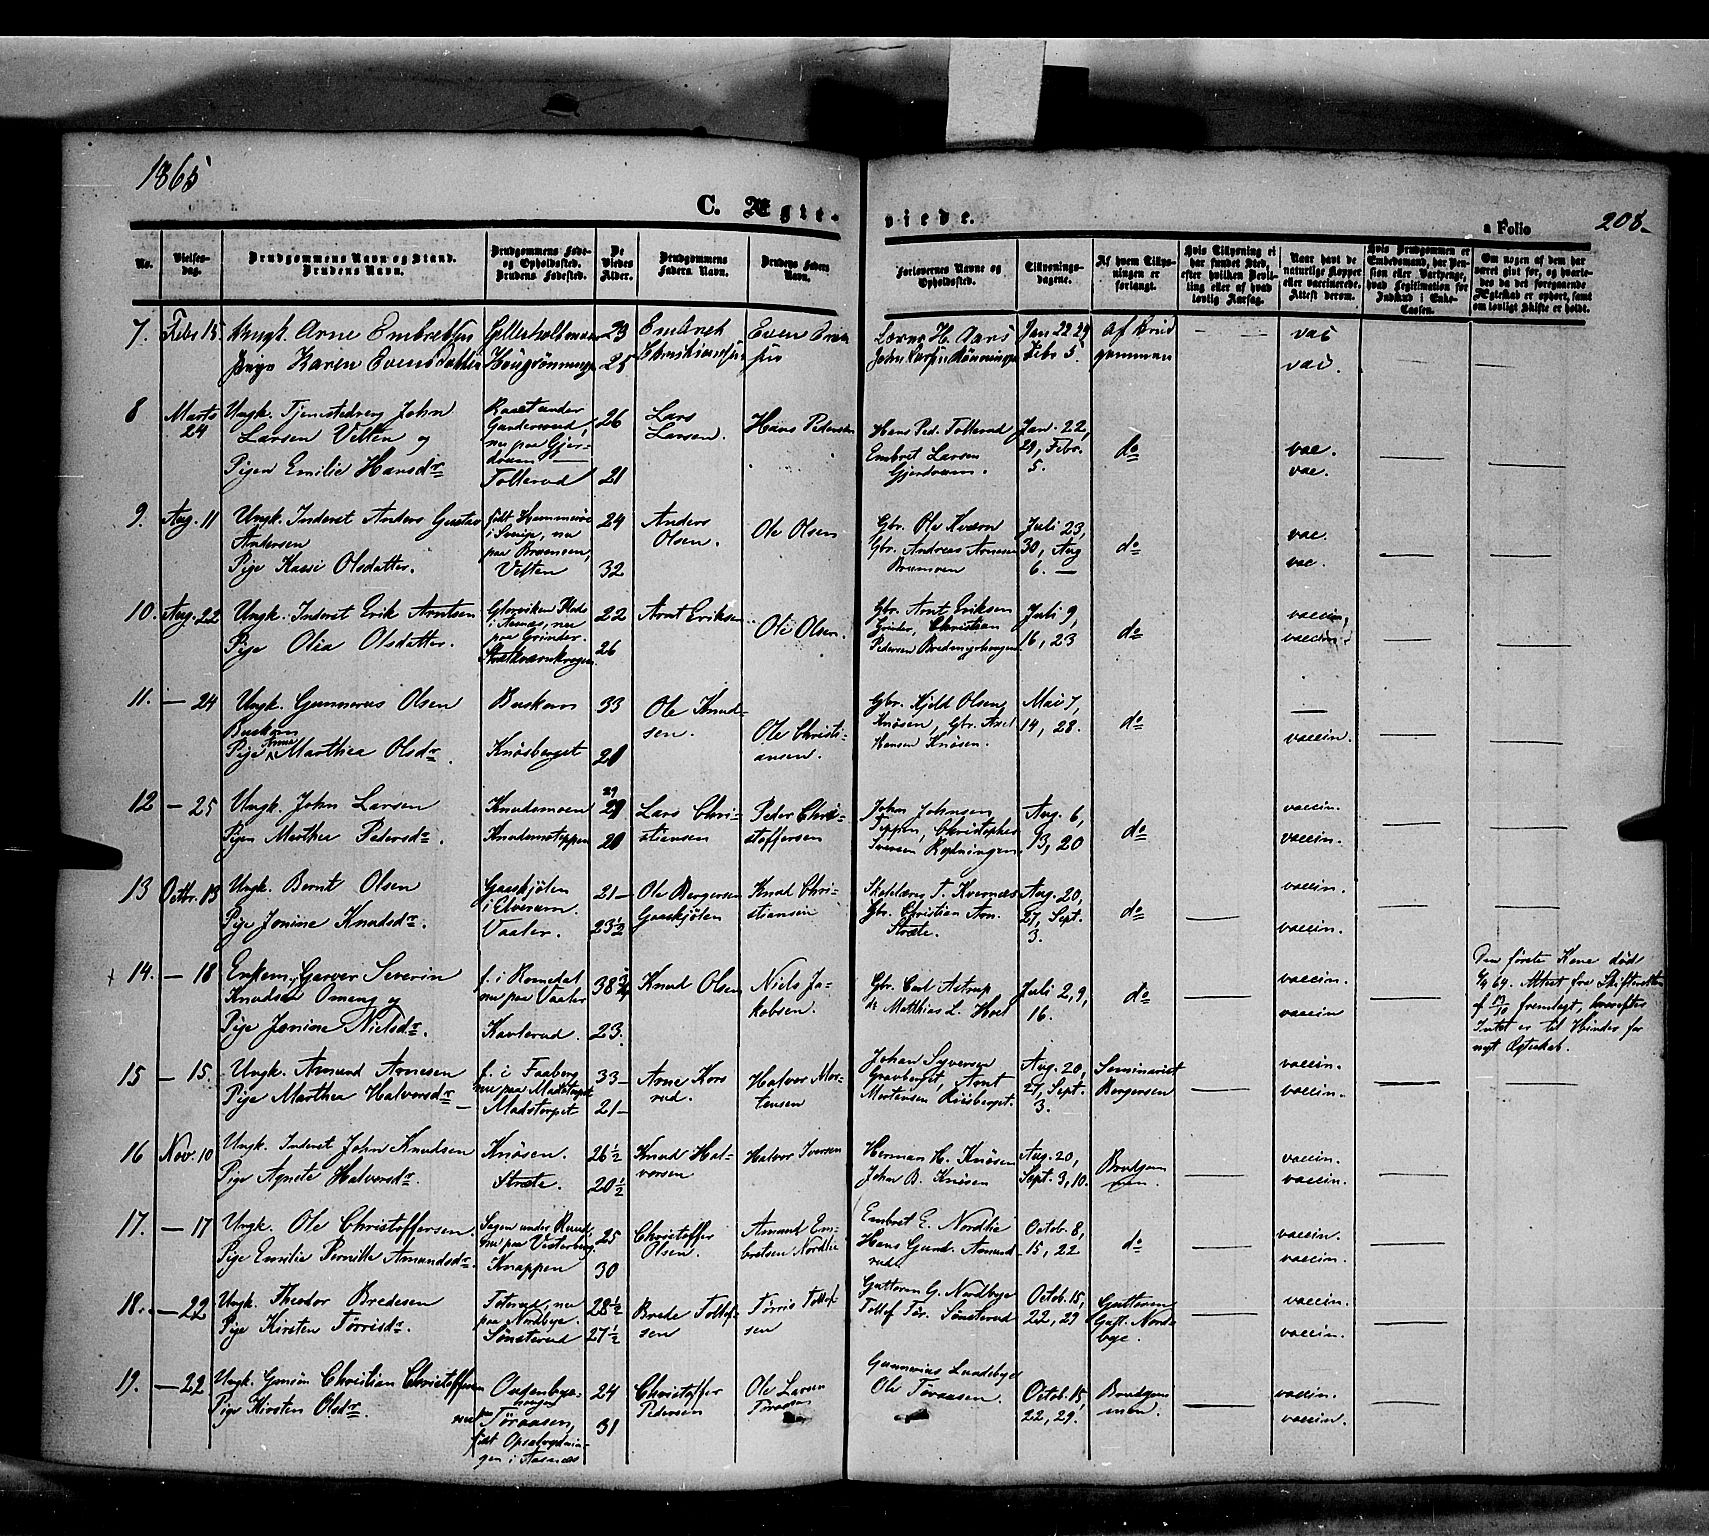 1865
C. Ægte-
viede.
a Folio 208.
No.
Vielses-
dag.
Brudgommens Navn og Stand.
Brudens Navn.
Brudgommens Føde-
og Opholdssted.
Brudens Fødested.
De
Viedes
Alder.
Brudgommens
Faders Navn.
Brudens Faders
Navn.
Forlovernes Navne og
Opholdssted.
Tillysnings-
dagene.
Af hvem Tillys-
ningen er
forlangt.
Hvis Tillysning ei
har fundet Sted,
efter hvilken Bevil-
ling eller af hvad
lovlig Aarsag.
Naar havt de
naturlige Kopper
eller vaccinerede.
Attest derom.
Hvis Brudgommen er
Embedsmand, har Pen-
sion eller Vartpenge,
hvad Legitimation for
Indskud i Enke-
Cassen.
Om nogen af dem har
været givt før, og hvorle-
des da det foregaaende
Ægteskab er ophørt, samt
om lovligt Skifte er holdt.
7. Febr 15 Ungk. Arne Embretsen 23 Embret Even Jan 22 29 af Brud vac
Pige Karen Evensdatter 25 Christiansen Febr 5. gommen vac.
8 Marts
24
Ungk. Tjenestedreng John
Larsen Velten og
Pigen Emilie Hansdr
nu paa Gjer-
Tollerud
26
21
Lars
Larsen.
Hans Pedersen
Hans Ped. Tollerud
Embret Larsen
Gjerdrum.
Jan. 22,
29, Febr.
5.
do
vac.
vac.
9. Aug. 11 Ungk. Inderst Anders Gustav
Andersen
Pige Kassi Olsdatter.
født Hammerøe
i Sverige, nu
paa Bræmoen,
Velten
24
32
Anders
Olsen.
Ole Olsen
Gbr. Ole Kværn
Gbr. Andreas Arnesen
Bræmoen
Juli 23,
30, Aug
6.
do
vac.
vac.
10. Aug. 22 Ungk. Inderst Erik Arntsen
Pige Olia Olsdatter.
i Aasnes, nu
paa Grinder.
22
26
Arnt Eriksen
Ole Olsen.
Gbr. Arnt Eriksen
Grinder, Christian
Pedersen
Juli 9,
16, 23
do
vaccin,
vaccin.
11. — 24 Ungk. Gunnerus Olsen
Buskom
Pige Anne Marthea Olsdr.
Buskom
Knøsberget
33
21
Ole Knud-
sen.
Ole Christi-
ansen.
Gbr. Kjeld Olsen
Knøsen, Gbr. Axel
Hansen Knøsen.
Mai 7,
14, 28.
do
vaccin.
12 — 25 Ungk. John Larsen
Pigen Marthea Pedersdr.
Knudsmoen
29
Lars Chri-
stiansen
Peder Chri-
stoffersen
John Johnsen
Teppen, Christopher
Iversen
Aug. 6,
13, 20
do
vaccin.
vaccin.
13 Octbr. 13 Ungk. Bernt Olsen
Pige Jonine Knudsdr.
Gaaskjølen
i Elverum.
Vaaler.
21
23½
Ole Bergersen
Gaaskjølen
Knud Chri-
stiansen
Skolelær. T. Kvernæs
Gbr. Christian Arn.
Stræte.
Aug. 20,
27, Sept.
3.
do
vaccin.
vaccin.
14. — 18 Enkem. Garver Severin
Knudsen Omeng og
Pige Jonine Nielsdr.
f. i Romedal
nu paa Vaaler
Kavlerud.
38
23.
Knud Olsen
Niels Ja-
kobsen.
Gbr. Carl Astrup
do Matthias L. Hoel
Juli 2, 9,
16.
do
vaccin.
vaccin
Den første Kone død
69. Attest fra Skifteretten
af fremlagt, hvorefter
Intet er til Hinder for
nyt Ægteskab.
15 — 15. Ungk. Amund Arnesen
Pige Marthea Halvorsdr.
f. i Faaberg
nu paa Madstorpet
Madstorpet
33
21
Arne Kors
rud.
Halvor Mor-
tensen
Johan Syversen
Gravberget, Arnt
Mortensen Risberget.
Aug. 20,
27, Sept.
3.
Seminarist
Bergersen
vaccin.
vaccin.
16 Nov. 10 Ungk. Inderst John Knudsen
Pige Agnete Halvorsdr.
Knøsen.
Stræte.
26½
20½
Knud Hal-
vorsen
Halvor Iversen
Herman H. Knøsen
John B. Knøsen
Aug. 20,
Sept. 3, 10.
Brudgom
men.
vaccin.
vaccin.
17. — 17 Ungk. Ole Christoffersen.
Pige Emilie Pernille Amundsdr.
nu paa Vesterberg
Knappen
25
30
Christoffer
Olsen.
Amund Em-
bretsen Nordlie
Embret E. Nordlie
Hans Gund. Amund-
rud
Octob. 8,
15, 22
do
vaccin.
vaccin.
18. — 22 Ungk. Theodor Bredesen
Pige Kirsten Tørrisdr.
paa Nordbye.
Sønsterud
28½
27½
Brede Tollef-
sen
Tørris Tollef-
sen
Guttorm G. Nordbye
Tollef Tør. Sønsterud
Octob. 15,
22, 29
Guttorm
Gutt. Nord-
bye.
vaccin.
vaccin.
19. — 22 Ungk. Christian Christoffersen
Pige Kirsten Olsdr.
nu
paa Tøraasen,
født
i Aasnæs
24
31
Christoffer
Pedersen
Ole Larsen
Tøraasen
Gunnerius Lundebye
Ole Tøraasen.
Octob. 15,
22, 29.
Brudgom
men.
vaccin.
vaccin.